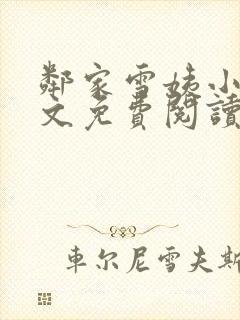 鄰家雪姨小
文免費閱讀
車尔尼雪夫斯